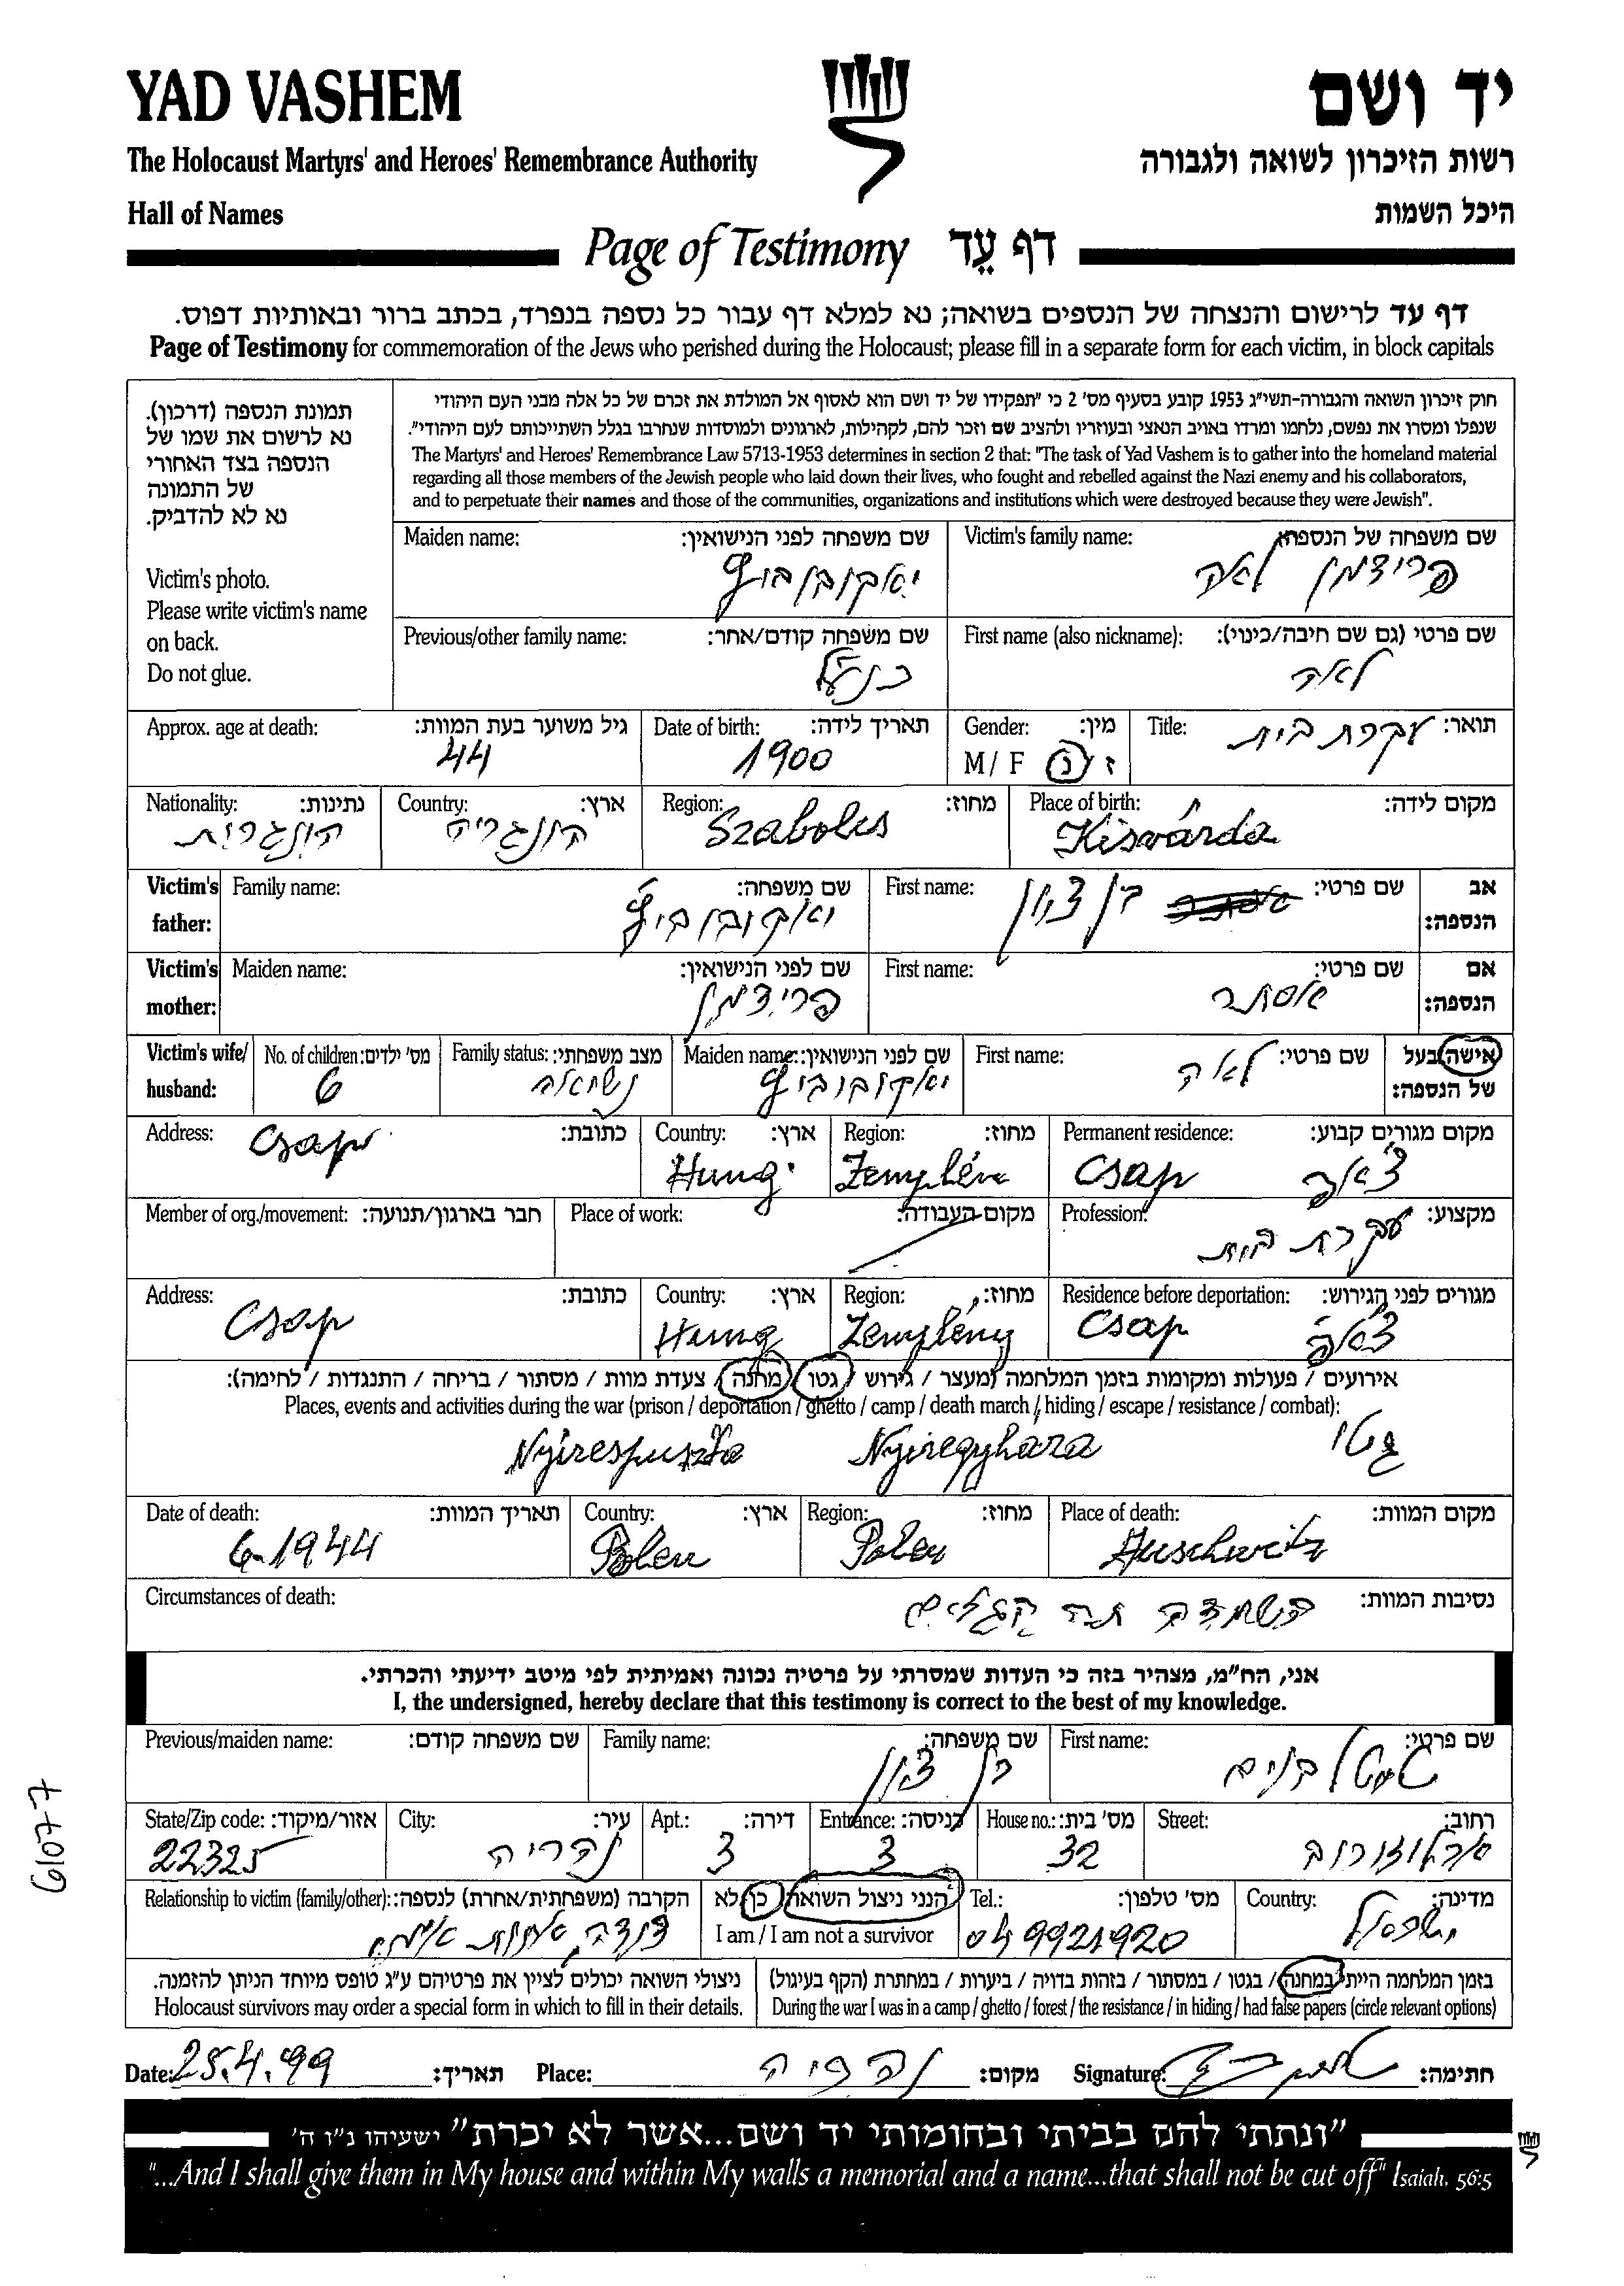 YAD VASHEM
יד ושם
The Holocaust Martyrs' and Heroes' Remembrance Authority
רשות הזיכרון לשואה ולגבורה
Hall of Names
היכל השמות
Page of Testimony דף עֵד
דף עד לרישום והנצחה של הנספים בשואה; נא למלא דף עבור כל נספה בנפרד, בכתב ברור ובאותיות דפוס.
Page of Testimony for commemoration of the Jews who perished during the Holocaust; please fill in a separate form for each victim, in block capitals
תמונת הנספה (דרכון).
נא לרשום את שמו של
הנספה בצד האחורי
של התמונה
נא לא להדביק.
Victim's photo.
Please write victim's name
on back.
Do not glue.
חוק זיכרון השואה והגבורה-תשי"ג 1953 קובע בסעיף מס' 2 כי "תפקידו של יד ושם הוא לאסוף אל המולדת את זכרם של כל אלה מבני העם היהודי
שנפלו ומסרו את נפשם, נלחמו ומרדו באויב הנאצי ובעוזריו ולהציב שם וזכר להם, לקהילות, לארגונים ולמוסדות שנחרבו בגלל השתייכותם לעם היהודי".
The Martyrs' and Heroes' Remembrance Law 5713-1953 determines in section 2 that: "The task of Yad Vashem is to gather into the homeland material
regarding all those members of the Jewish people who laid down their lives, who fought and rebelled against the Nazi enemy and his collaborators,
and to perpetuate their names and those of the communities, organizations and institutions which were destroyed because they were Jewish".
Victim's family name: שם משפחה של הנספה:
פרידמן לאה
Maiden name: שם משפחה לפני הנישואין:
יאקובוביץ
First name (also nickname): שם פרטי (גם שם חיבה/כינוי):
לאה
Previous/other family name: שם משפחה קודם/אחר:
כנ"ל
Title: תואר: עקרת בית
Gender: מין:
M / F ז / נ
Date of birth: תאריך לידה:
1900
Approx. age at death: גיל משוער בעת המוות:
44
Place of birth: מקום לידה:
Kisvárda
Region: מחוז:
Szabolcs
Country: ארץ:
הונגריה
Nationality: נתינות:
הונגרית
Victim's father: אב הנספה:
First name: שם פרטי: בן ציון
Family name: שם משפחה:
יאקובוביץ
Victim's mother: אם הנספה:
First name: שם פרטי:
אסתר
Maiden name: שם לפני הנישואין:
פרידמן
Victim's wife/husband: אישה/בעל של הנספה:
First name: שם פרטי: לאה
Maiden name: שם לפני הנישואין:
יאקובוביץ
Family status: מצב משפחתי:
נשואה
No. of children: מס' ילדים:
6
Permanent residence: מקום מגורים קבוע:
Csap צ'אפ
Region: מחוז:
Zemplén
Country: ארץ:
Hung.
Address: כתובת:
Csap
Profession: מקצוע:
עקרת בית
Place of work: מקום העבודה:
Member of org./movement: חבר בארגון/תנועה:
Residence before deportation: מגורים לפני הגירוש:
Csap צ'אפ
Region: מחוז:
Zemplény
Country: ארץ:
Hung
Address: כתובת:
Csap
אירועים / פעולות ומקומות בזמן המלחמה (מעצר / גירוש / גטו / מחנה / צעדת מוות / מסתור / בריחה / התנגדות / לחימה):
Places, events and activities during the war (prison / deportation / ghetto / camp / death march / hiding / escape / resistance / combat):
גטו Nyiregyhaza Nyirespuszta
Place of death: מקום המוות:
Auschwitz
Region: מחוז:
Polen
Country: ארץ:
Polen
Date of death: תאריך המוות:
6-1944
Circumstances of death: נסיבות המוות:
השמדה תה הגזים
אני, הח"מ, מצהיר בזה כי העדות שמסרתי על פרטיה נכונה ואמיתית לפי מיטב ידיעתי והכרתי.
I, the undersigned, hereby declare that this testimony is correct to the best of my knowledge.
First name: שם פרטי:
Family name: שם משפחה:
בן ציון
Previous/maiden name: שם משפחה קודם:
Street: רחוב:
ארלוזורוב
House no.: מס' בית:
32
Entrance: כניסה:
3
Apt.: דירה:
3
City: עיר:
נהריה
State/Zip code: אזור/מיקוד:
22325
Country: מדינה:
ישראל
Tel.: מס' טלפון:
04 9921920
הנני ניצול השואה כן לא
I am / I am not a survivor
Relationship to victim (family/other): הקרבה (משפחתית/אחרת) לנספה:
דודה אחות אימי
בזמן המלחמה הייתי במחנה / בגטו / במסתור / בזהות בדויה / ביערות / במחתרת (הקף בעיגול)
During the war I was in a camp / ghetto / forest / the resistance / in hiding / had false papers (circle relevant options)
ניצולי השואה יכולים לציין את פרטיהם ע"ג טופס מיוחד הניתן להזמנה.
Holocaust survivors may order a special form in which to fill in their details.
Date: 25.4.99 תאריך: Place: נהריה מקום: Signature: חתימה:
"ונתתי להם בביתי ובחומותי יד ושם...אשר לא יכרת" ישעיהו נ"ו ה'
"...And I shall give them in My house and within My walls a memorial and a name...that shall not be cut off" Isaiah, 56:5
61077